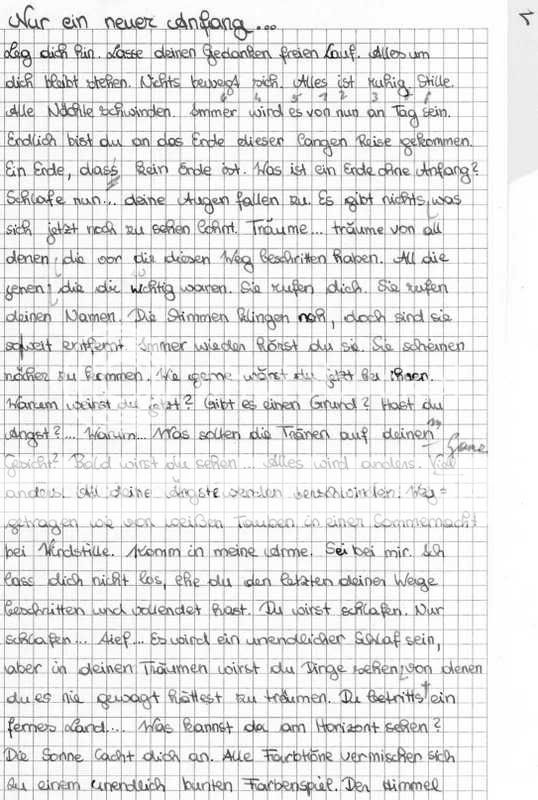 Nur ein neuer Anfang...
1
Leg dich hin. Lasse deinen Gedanken freien Lauf. Alles um
dich bleibt stehen. Nichts bewegt sich. Alles ist ruhig. Stille.
6 4 5 1 2 3 7 8
Alle Nächte schwinden. Immer wird es von nun an Tag sein.
Endlich bist du an das Ende dieser langen Reise gekommen.
Ein Ende, dass kein Ende ist. Was ist ein Ende ohne Anfang?
Schlafe nun... deine Augen fallen zu. Es gibt nichts, was
sich jetzt noch zu sehen lohnt. Träume... träume von all
denen, die vor dir diesen Weg beschritten haben. All die
jenen, die dir wichtig waren. Sie rufen dich. Sie rufen
deinen Namen. Die Stimmen klingen nah, doch sind sie
so weit entfernt. Immer wieder hörst du sie. Sie scheinen
näher zu kommen. Wie gerne wärst du jetzt bei ihnen.
Warum weinst du jetzt? Gibt es einen Grund? Hast du
Angst?... Warum... Was sollen die Tränen auf deinem
Gesicht? Bald wirst du sehen... Alles wird anders. Viel Ganz
anders. All deine Ängste werden verschwinden. Weg=
getragen wie von weißen Tauben in einer Sommernacht
bei Windstille. Komm in meine Arme. Sei bei mir. Ich
lass dich nicht los, ehe du den letzten deiner Wege
beschritten und vollendet hast. Du wirst schlafen. Nur
schlafen... Tief... Es wird ein unendlicher Schlaf sein,
aber in deinen Träumen wirst du Dinge sehen, von denen
du es nie gewagt hättest zu träumen. Du betrittst ein
fernes Land.... Was kannst da am Horizont sehen?
Die Sonne lacht dich an. Alle Farbtöne vermischen sich
zu einem unendlich bunten Farbenspiel. Der Himmel